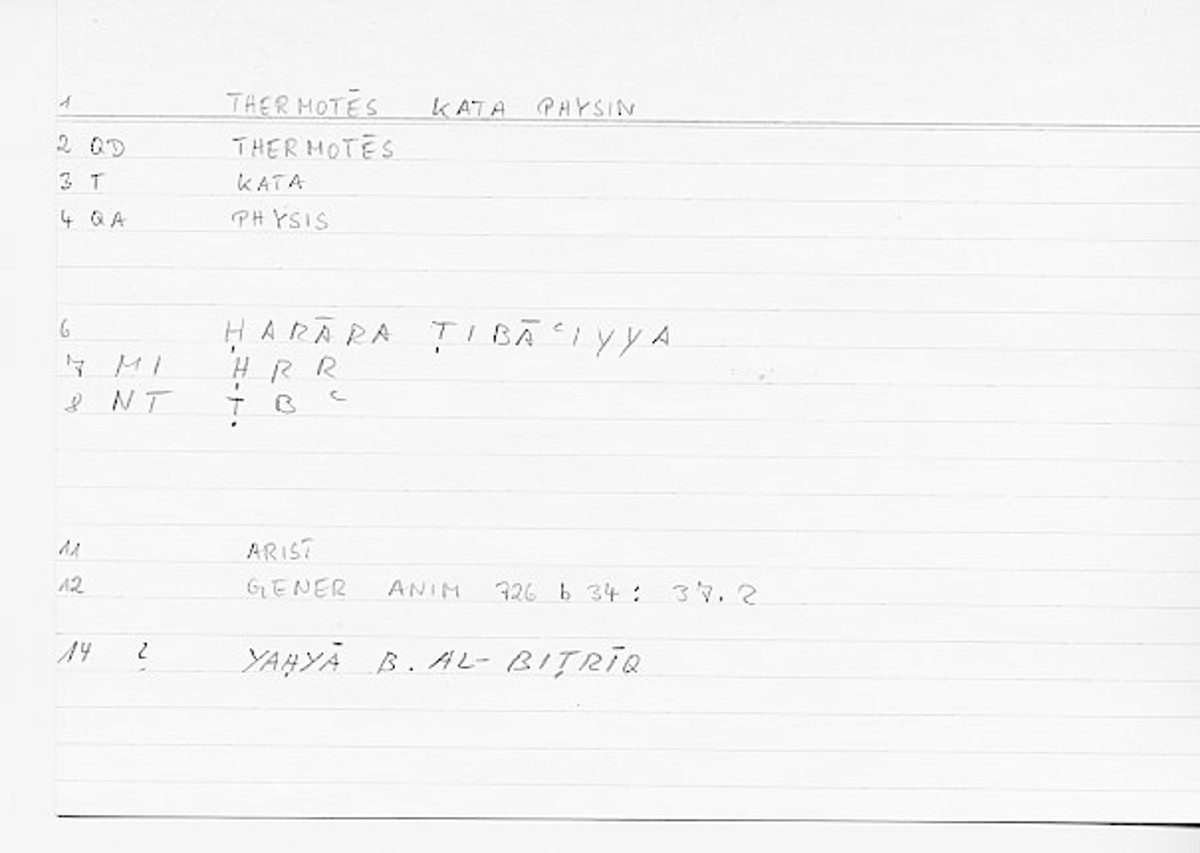 1 THERMOTĒS KATA PHYSIN
2 QD THERMOTĒS
3 T KATA
4 QA PHYSIS
6 ḤARĀRA ṬIBĀʿIYYA
7 MI Ḥ R R
8 NT Ṭ B ʿ
11 ARIST
12 GENER ANIM 726 b 34 : 37.2
14 ? YAḤYĀ B. AL-BIṬRĪQ